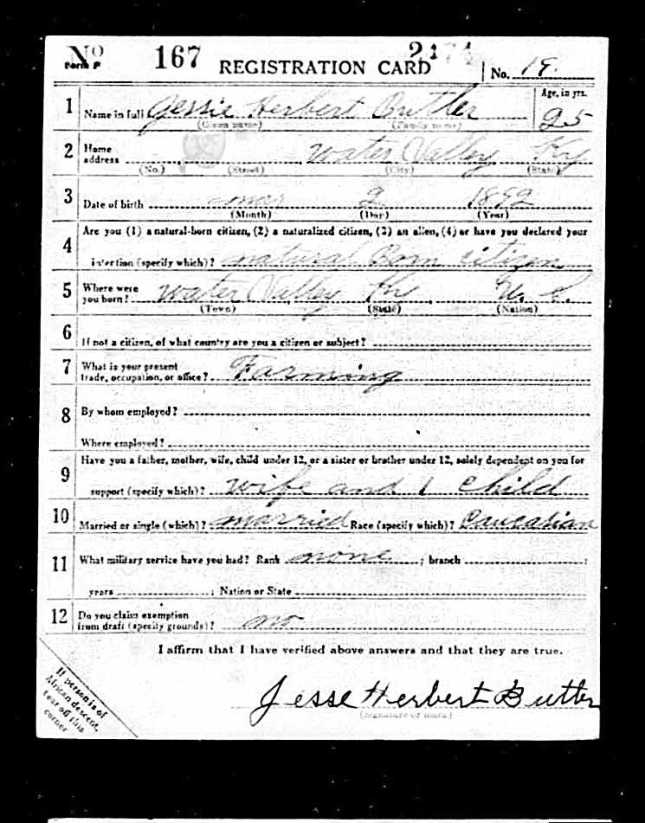 No 167 2174
Form P REGISTRATION CARD No. 19.
1 Name in full Jessie Herbert Butler Age, in yrs. 25
(Given name) (Family name)
2 Home address Water Valley Ky
(No.) (Street) (City) (State)
3 Date of birth mar 2 1892
(Month) (Day) (Year)
Are you (1) a natural-born citizen, (2) a naturalized citizen, (3) an alien, (4) or have you declared your
4 intention (specify which)? natural Born citizen
5 Where were you born? Water Valley Ky U. S.
(Town) (State) (Nation)
6 If not a citizen, of what country are you a citizen or subject?
7 What is your present
trade, occupation, or office? Farming
8 By whom employed?
Where employed?
9 Have you a father, mother, wife, child under 12, or a sister or brother under 12, solely dependent on you for
support (specify which)? wife and 1 child
10 Married or single (which)? married Race (specify which)? Caucasian
11 What military service have you had? Rank none ; branch ;
years ; Nation or State
12 Do you claim exemption
from draft (specify grounds)? no
I affirm that I have verified above answers and that they are true.
If person is of
African descent,
tear off this
corner
Jesse Herbert Butler
(Signature or mark)